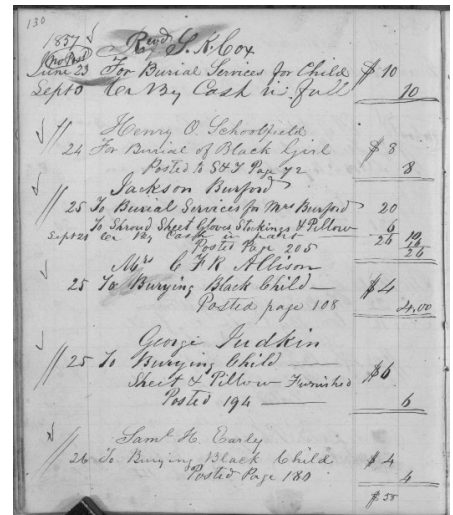 130
1857 Revd G. K. Cox
No Post
June 23 For Burial Services for Child $10
Sept Cr By Cash in full 10
Henry O. Schoolfield
// 24 For Burial of Black Girl $8
Posted to S & J Page 72 8
Jackson Burford
// 25 To Burial Services for Mrs Burford 20
To Shroud Sheet Gloves Stockings & Pillow 6
Sept 21 Cr By Cash in part 26 10
Posted Page 205 16
26
Mrs C F R Allison
25 To Burying Black Child — $4
Posted page 108 4.00
George Judkin
// 25 To Burying Child — $6
Sheet & Pillow Furnished
Posted 194 — 6
Saml H. Early
// 26 To Burying Black Child $4
Posted Page 180 4
$58